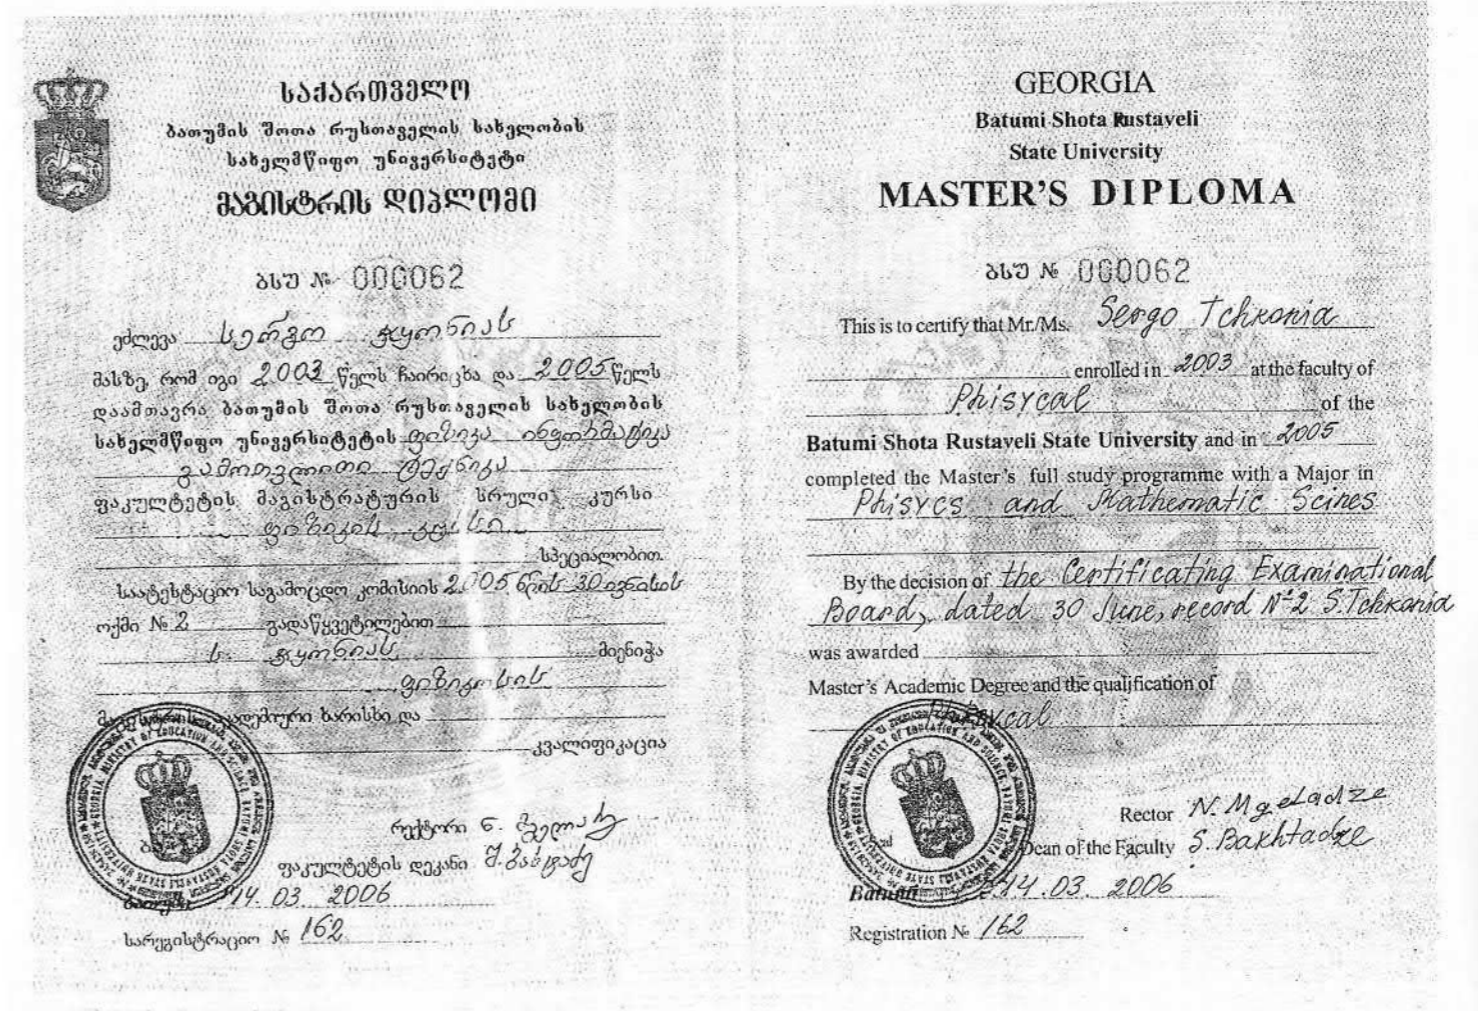 საქართველო
ბათუმის შოთა რუსთაველის სახელობის
სახელმწიფო უნივერსიტეტი
მაგისტრის დიპლომი
ბსუ № 000062
ეძლევა სერგო ჭყონიას
მასზე, რომ იგი 2003 წელს ჩაირიცხა და 2005 წელს
დაამთავრა ბათუმის შოთა რუსთაველის სახელობის
სახელმწიფო უნივერსიტეტის ფიზიკა ინფორმატიკა
გამოთვლითი ტექნიკა
ფაკულტეტის მაგისტრატურის სრული კურსი
ფიზიკის
სპეციალობით.
საატესტაციო საგამოცდო კომისიის 2005 წლის 30 ივნისის
ოქმი № 2 გადაწყვეტილებით
ს. ჭყონიას მიენიჭა
ფიზიკოსის
მაგისტრის აკადემიური ხარისხი და
კვალიფიკაცია
რექტორი ნ. მგელაძე
ფაკულტეტის დეკანი შ. ბახტაძე
ბათუმი 14.03.2006
სარეგისტრაციო № 162
GEORGIA
Batumi Shota Rustaveli
State University
MASTER'S DIPLOMA
ბსუ № 000062
This is to certify that Mr./Ms. Sergo Tchkonia
enrolled in 2003 at the faculty of
Phisycal of the
Batumi Shota Rustaveli State University and in 2005
completed the Master's full study programme with a Major in
Phisycs and Mathematic Scines
By the decision of the Certificating Examinational
Board, dated 30 June, record №2 S.Tchkonia
was awarded
Master's Academic Degree and the qualification of
Phisycal
Rector N. Mgeladze
Dean of the Faculty S. Bakhtadze
Batumi 14.03.2006
Registration № 162